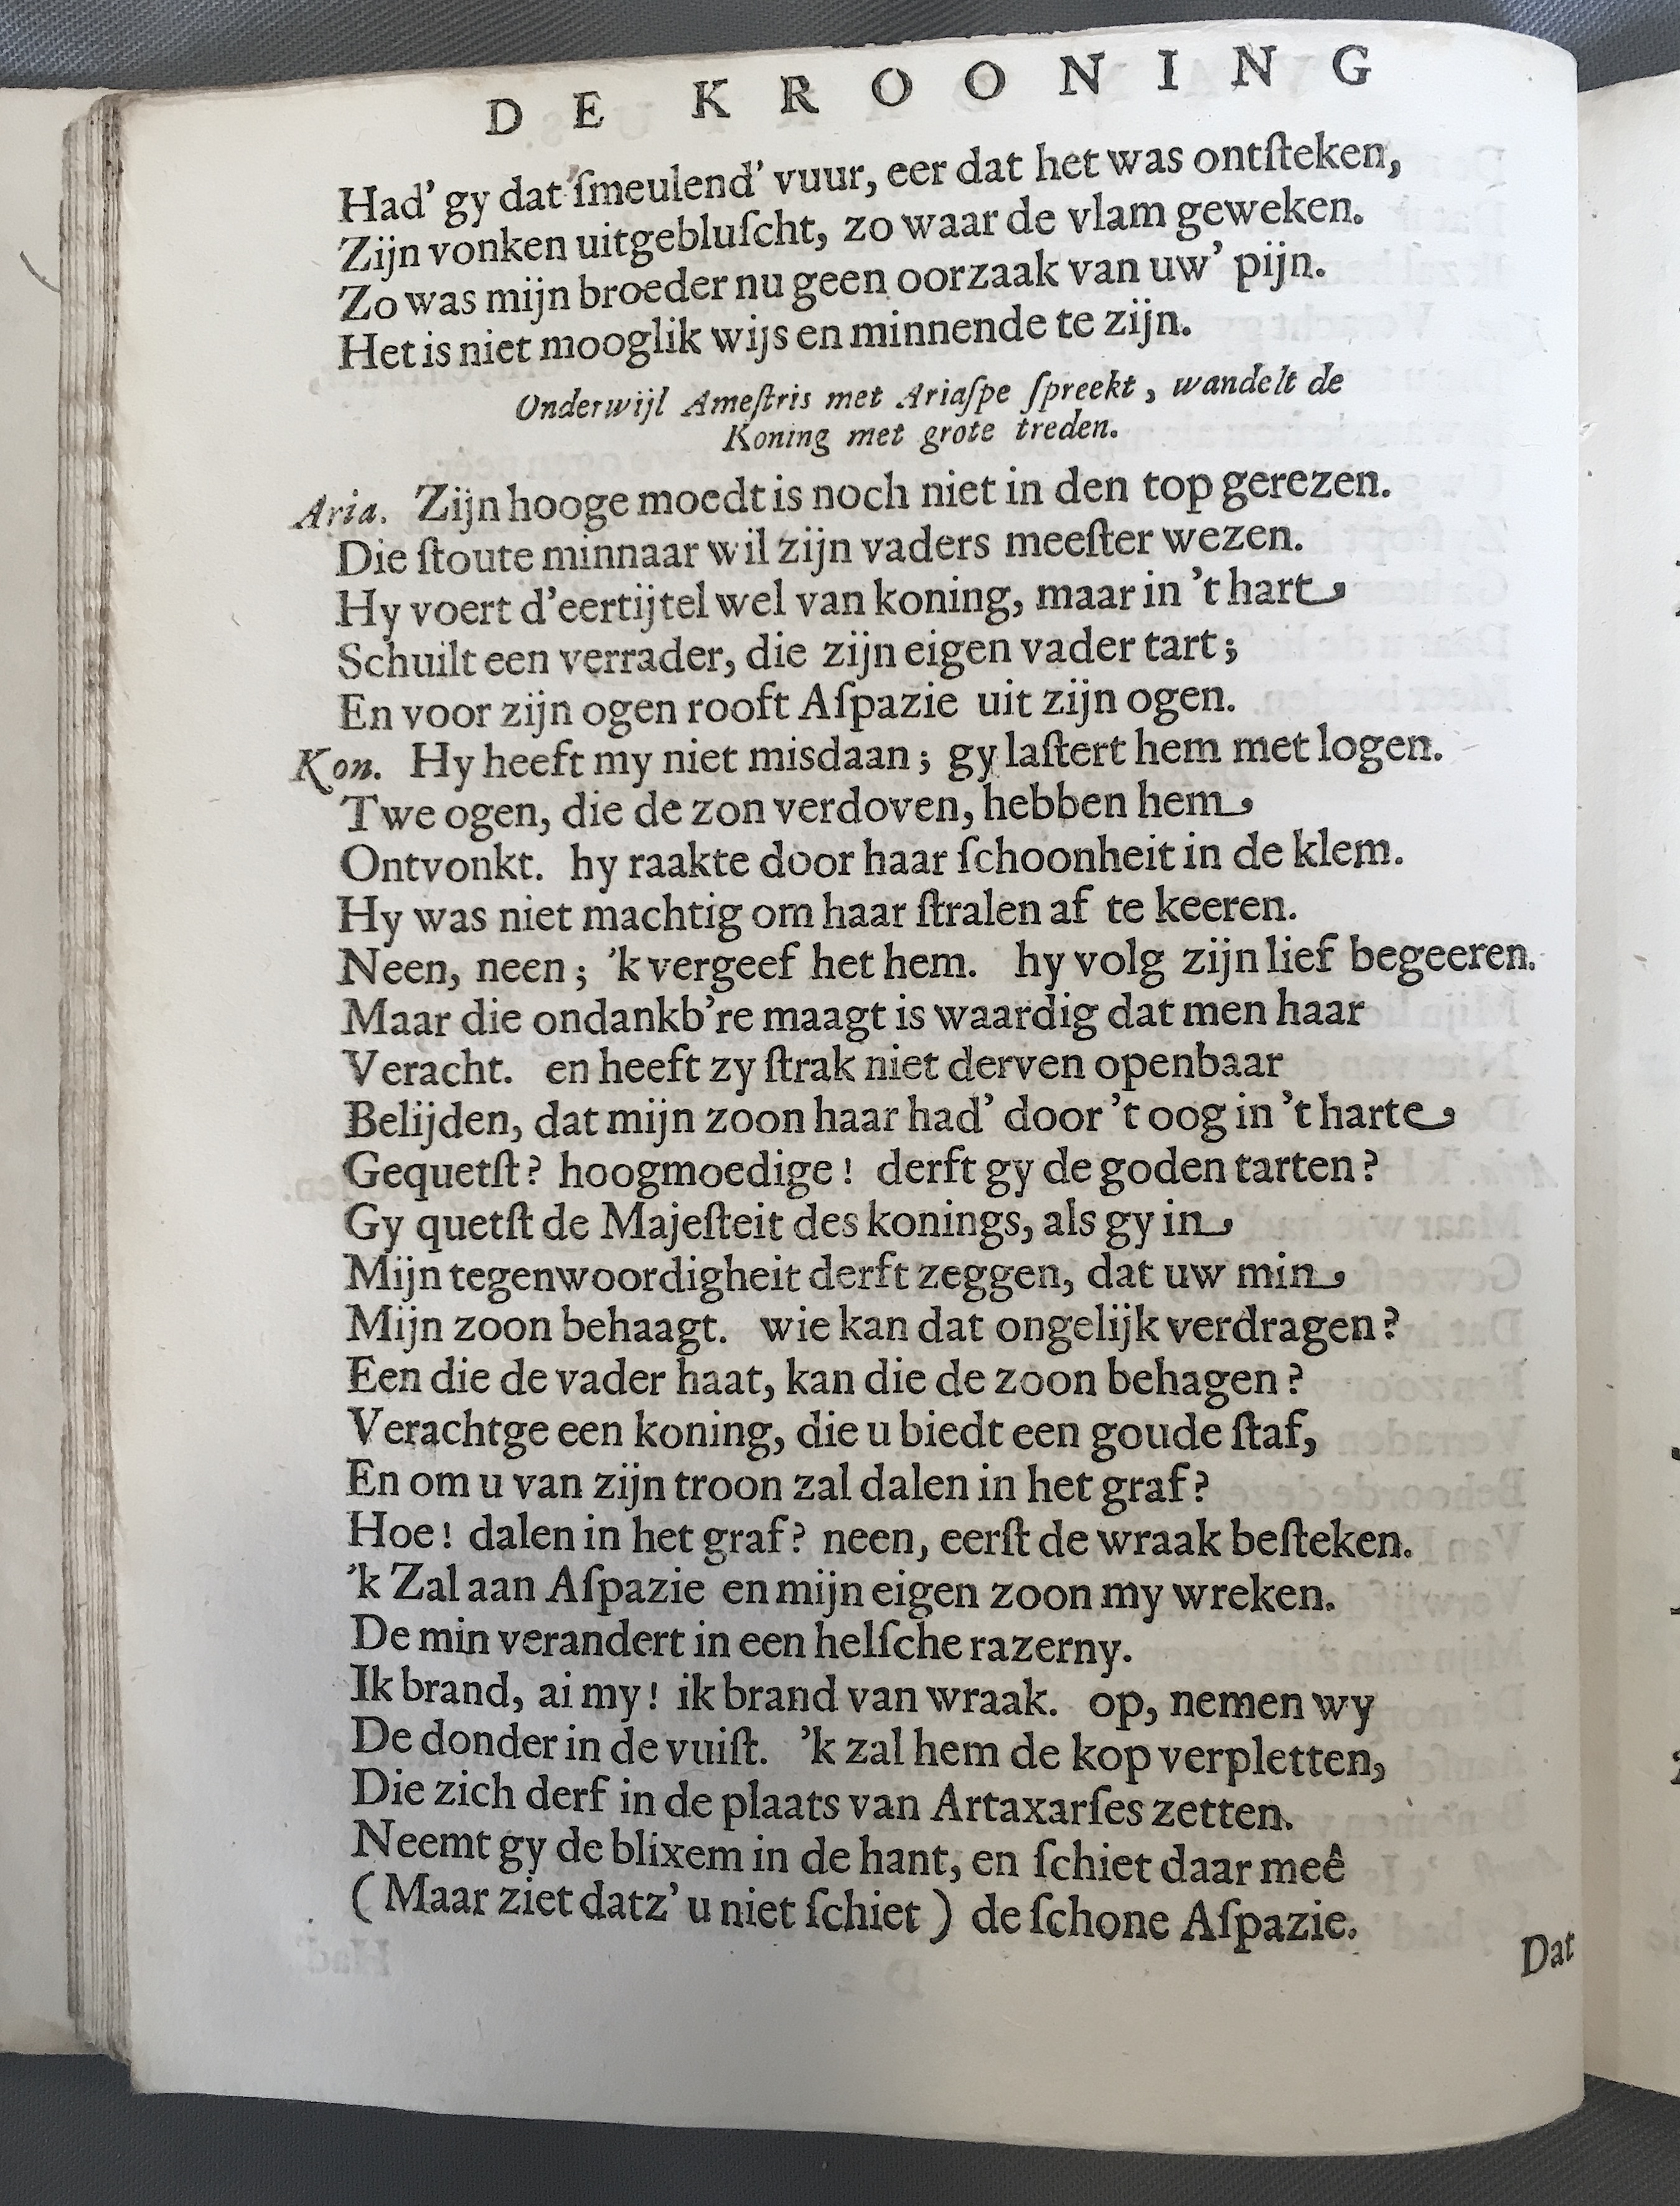 DE KROONING
Had' gy dat ſmeulend' vuur, eer dat het was ontſteken,
Zijn vonken uitgebluſcht, zo waar de vlam geweken.
Zo was mijn broeder nu geen oorzaak van uw' pijn.
Het is niet mooglik wijs en minnende te zijn.
Onderwijl Ameſtris met Ariaſpe ſpreekt, wandelt de
Koning met grote treden.
Aria. Zijn hooge moedt is noch niet in den top gerezen.
Die ſtoute minnaar wil zijn vaders meeſter wezen.
Hy voert d'eertijtel wel van koning, maar in 't hart
Schuilt een verrader, die zijn eigen vader tart;
En voor zijn ogen rooft Aſpazie uit zijn ogen.
Kon. Hy heeft my niet misdaan; gy laſtert hem met logen.
Twe ogen, die de zon verdoven, hebben hem
Ontvonkt. hy raakte door haar ſchoonheit in de klem.
Hy was niet machtig om haar ſtralen af te keeren.
Neen, neen; 'k vergeef het hem. hy volg zijn lief begeeren.
Maar die ondankb're maagt is waardig dat men haar
Veracht. en heeft zy ſtrak niet derven openbaar
Belijden, dat mijn zoon haar had' door 't oog in 't harte
Gequetſt? hoogmoedige! derft gy de goden tarten?
Gy quetſt de Majeſteit des konings, als gy in
Mijn tegenwoordigheit derft zeggen, dat uw min
Mijn zoon behaagt. wie kan dat ongelijk verdragen?
Een die de vader haat, kan die de zoon behagen?
Verachtge een koning, die u biedt een goude ſtaf,
En om u van zijn troon zal dalen in het graf?
Hoe! dalen in het graf? neen, eerſt de wraak beſteken.
'k Zal aan Aſpazie en mijn eigen zoon my wreken.
De min verandert in een helſche razerny.
Ik brand, ai my! ik brand van wraak. op, nemen wy
De donder in de vuiſt. 'k zal hem de kop verpletten,
Die zich derf in de plaats van Artaxarſes zetten.
Neemt gy de blixem in de hant, en ſchiet daar meê
(Maar ziet datz' u niet ſchiet) de ſchone Aſpazie.
Dat